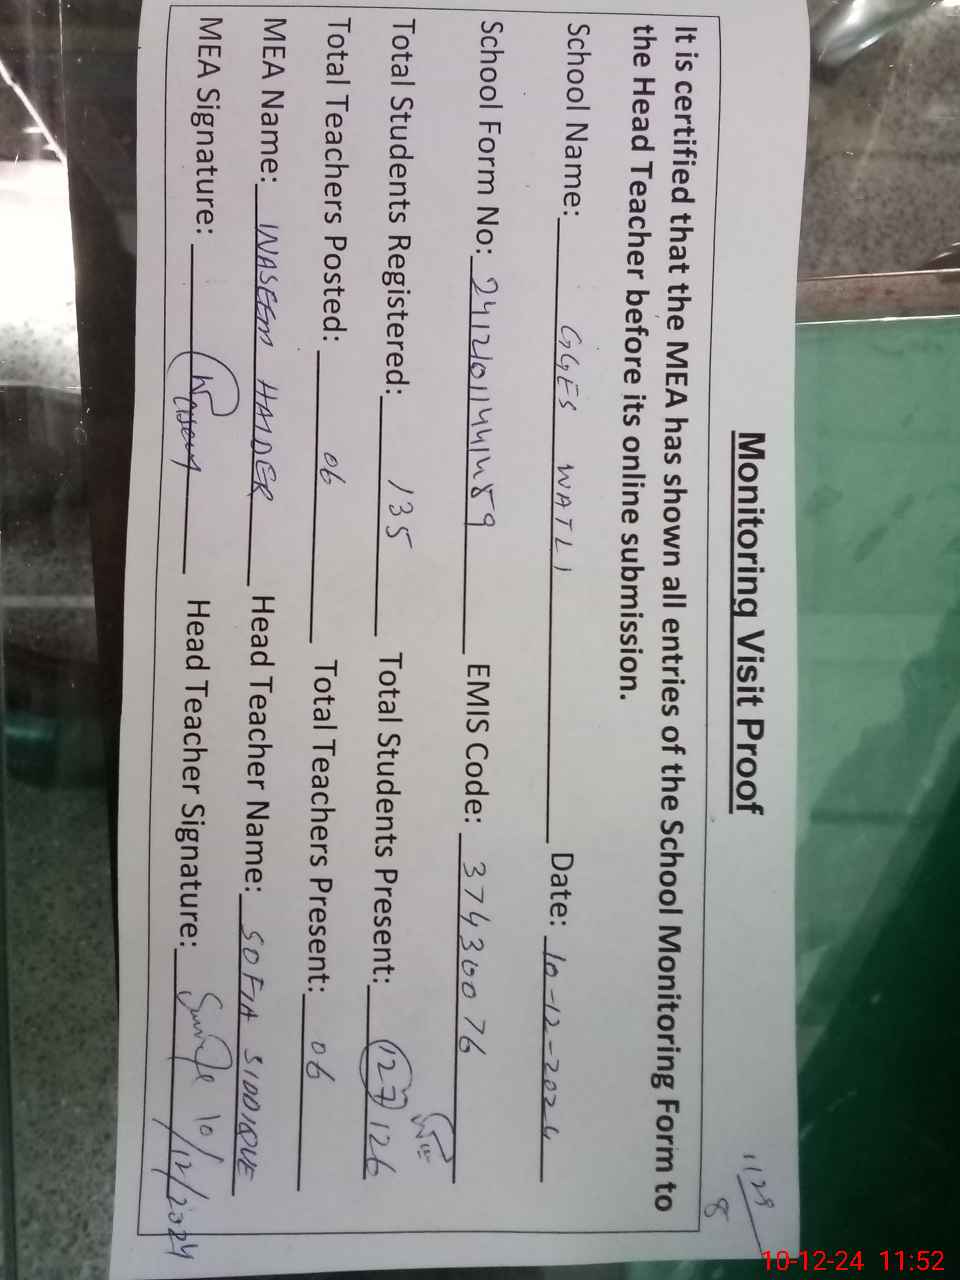 1129
8
Monitoring Visit Proof
It is certified that the MEA has shown all entries of the School Monitoring Form to
the Head Teacher before its online submission.
School Name: GGES WATLI Date: 10-12-2024
School Form No: EMIS Code: 37430076
Total Students Registered: 135 Total Students Present: 127 126
Total Teachers Posted: 06 Total Teachers Present: 06
MEA Name: WASEEM HAIDER Head Teacher Name: SOFIA SIDDIQUE
MEA Signature: Waseem Head Teacher Signature: 10/12/2024
10-12-24 11:52